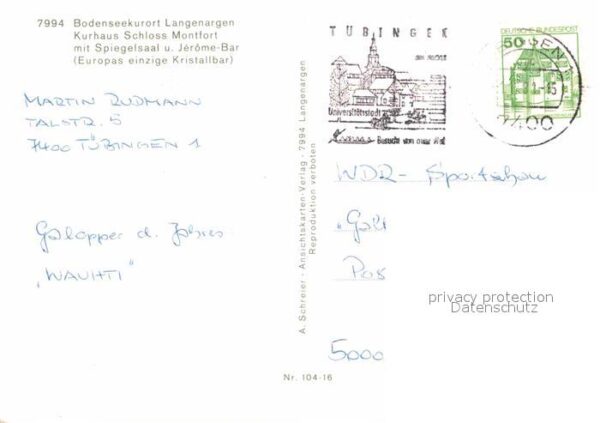 7994 Bodenseekurort Langenargen
Kurhaus Schloss Montfort
mit Spiegelsaal u. Jérôme-Bar
(Europas einzige Kristallbar)
MARTIN RUDMANN
TALSTR. 5
7400 TÜBINGEN 1
Galopper d. Jahres
"WAUHTI"
A. Schreier - Ansichtskarten-Verlag - 7994 Langenargen
Reproduktion verboten
Nr. 104-16
TÜBINGEN
Universitätsstadt
DEUTSCHE BUNDESPOST
50
7400
WDR - Sportschau
privacy protection
Datenschutz
5000